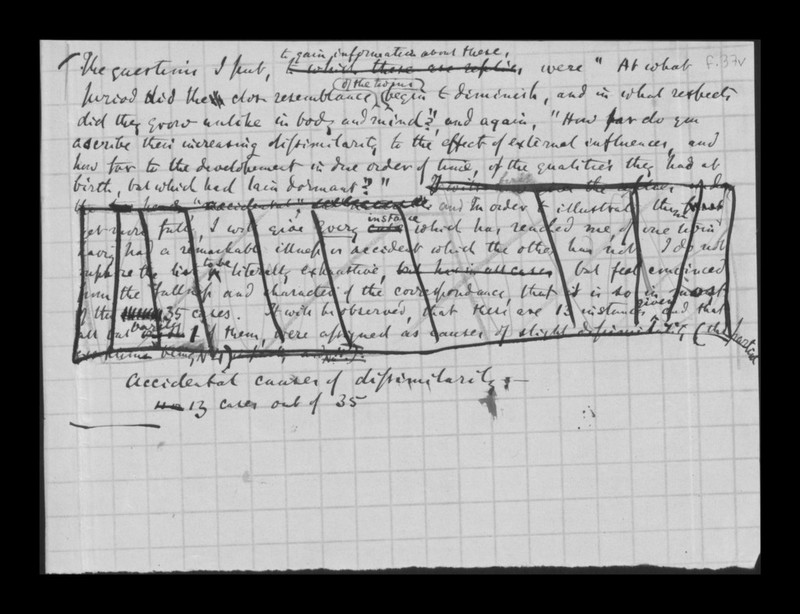 to gain information about these,
The questions I put, to which these are replies, were " At what f.37v
of the twins
period did the close resemblance begin to diminish, and in what respects
did they grow unlike in body and mind"? and again, "How far do you
ascribe their increasing dissimilarity to the effect of external influences, and
how far to the development in due order of time, of the qualities they had at
birth, but which had lain dormant"? " I will
"accidental" and In order to illustrate this
instance
yet more fully, I will give every case which has reached me of one twin
having had a remarkable illness or accident which the other has not. I do not
to be
suppose the list literally exhaustive, but in all cases but feel convinced
from the fullness and character of the correspondence, that it is so in most
given
of the 35 cases. It will be observed, that there are 13 instances and that
all but of them, were assigned as causes of slight dissimilarity, (the
exceptions being
Accidental causes of dissimilarity -
13 cases out of 35